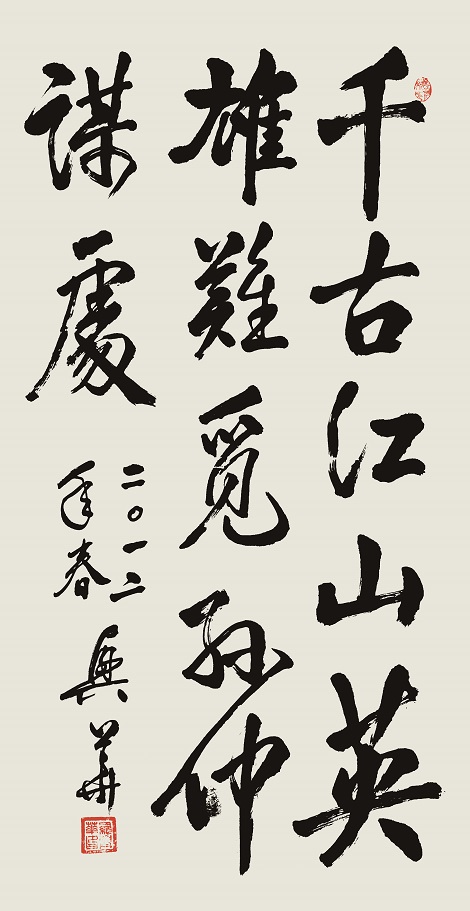 千古江山英
雄難覓孫仲
謀處
二〇一二
年春
興華